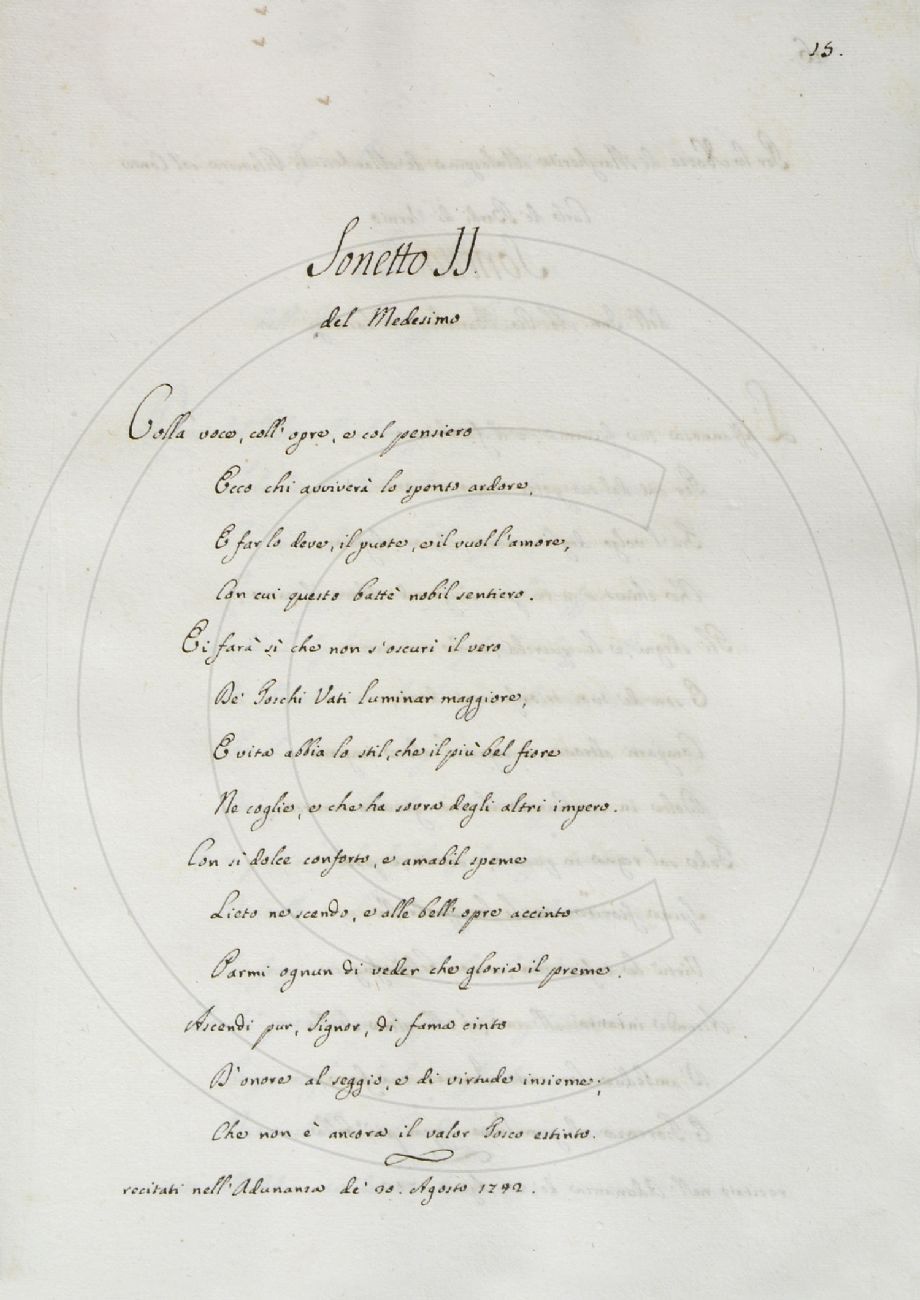 15.
Sonetto II.
del Medesimo
Colla voce, coll' opre, e col pensiero
Ecco chi avviverà lo spento ardore,
E far lo deve, il puote, e il vuol l'amore,
Con cui questo battè nobil sentiero.
Ei farà sì che non s'oscuri il vero
De' Toschi Vati luminar maggiore,
E vita abbia lo stil, che il più bel fiore
Ne coglie, e che ha sovra degli altri impero.
Con sì dolce conforto, e amabil speme
Lieto ne scendo, e alle bell' opre accinto
Parmi ognun di veder che gloria il preme.
Ascendi pur, Signor, di fama cinto
D'onore al seggio, e di virtude insieme;
Che non è ancora il valor Tosco estinto.
recitati nell' Adunanza de' Agosto